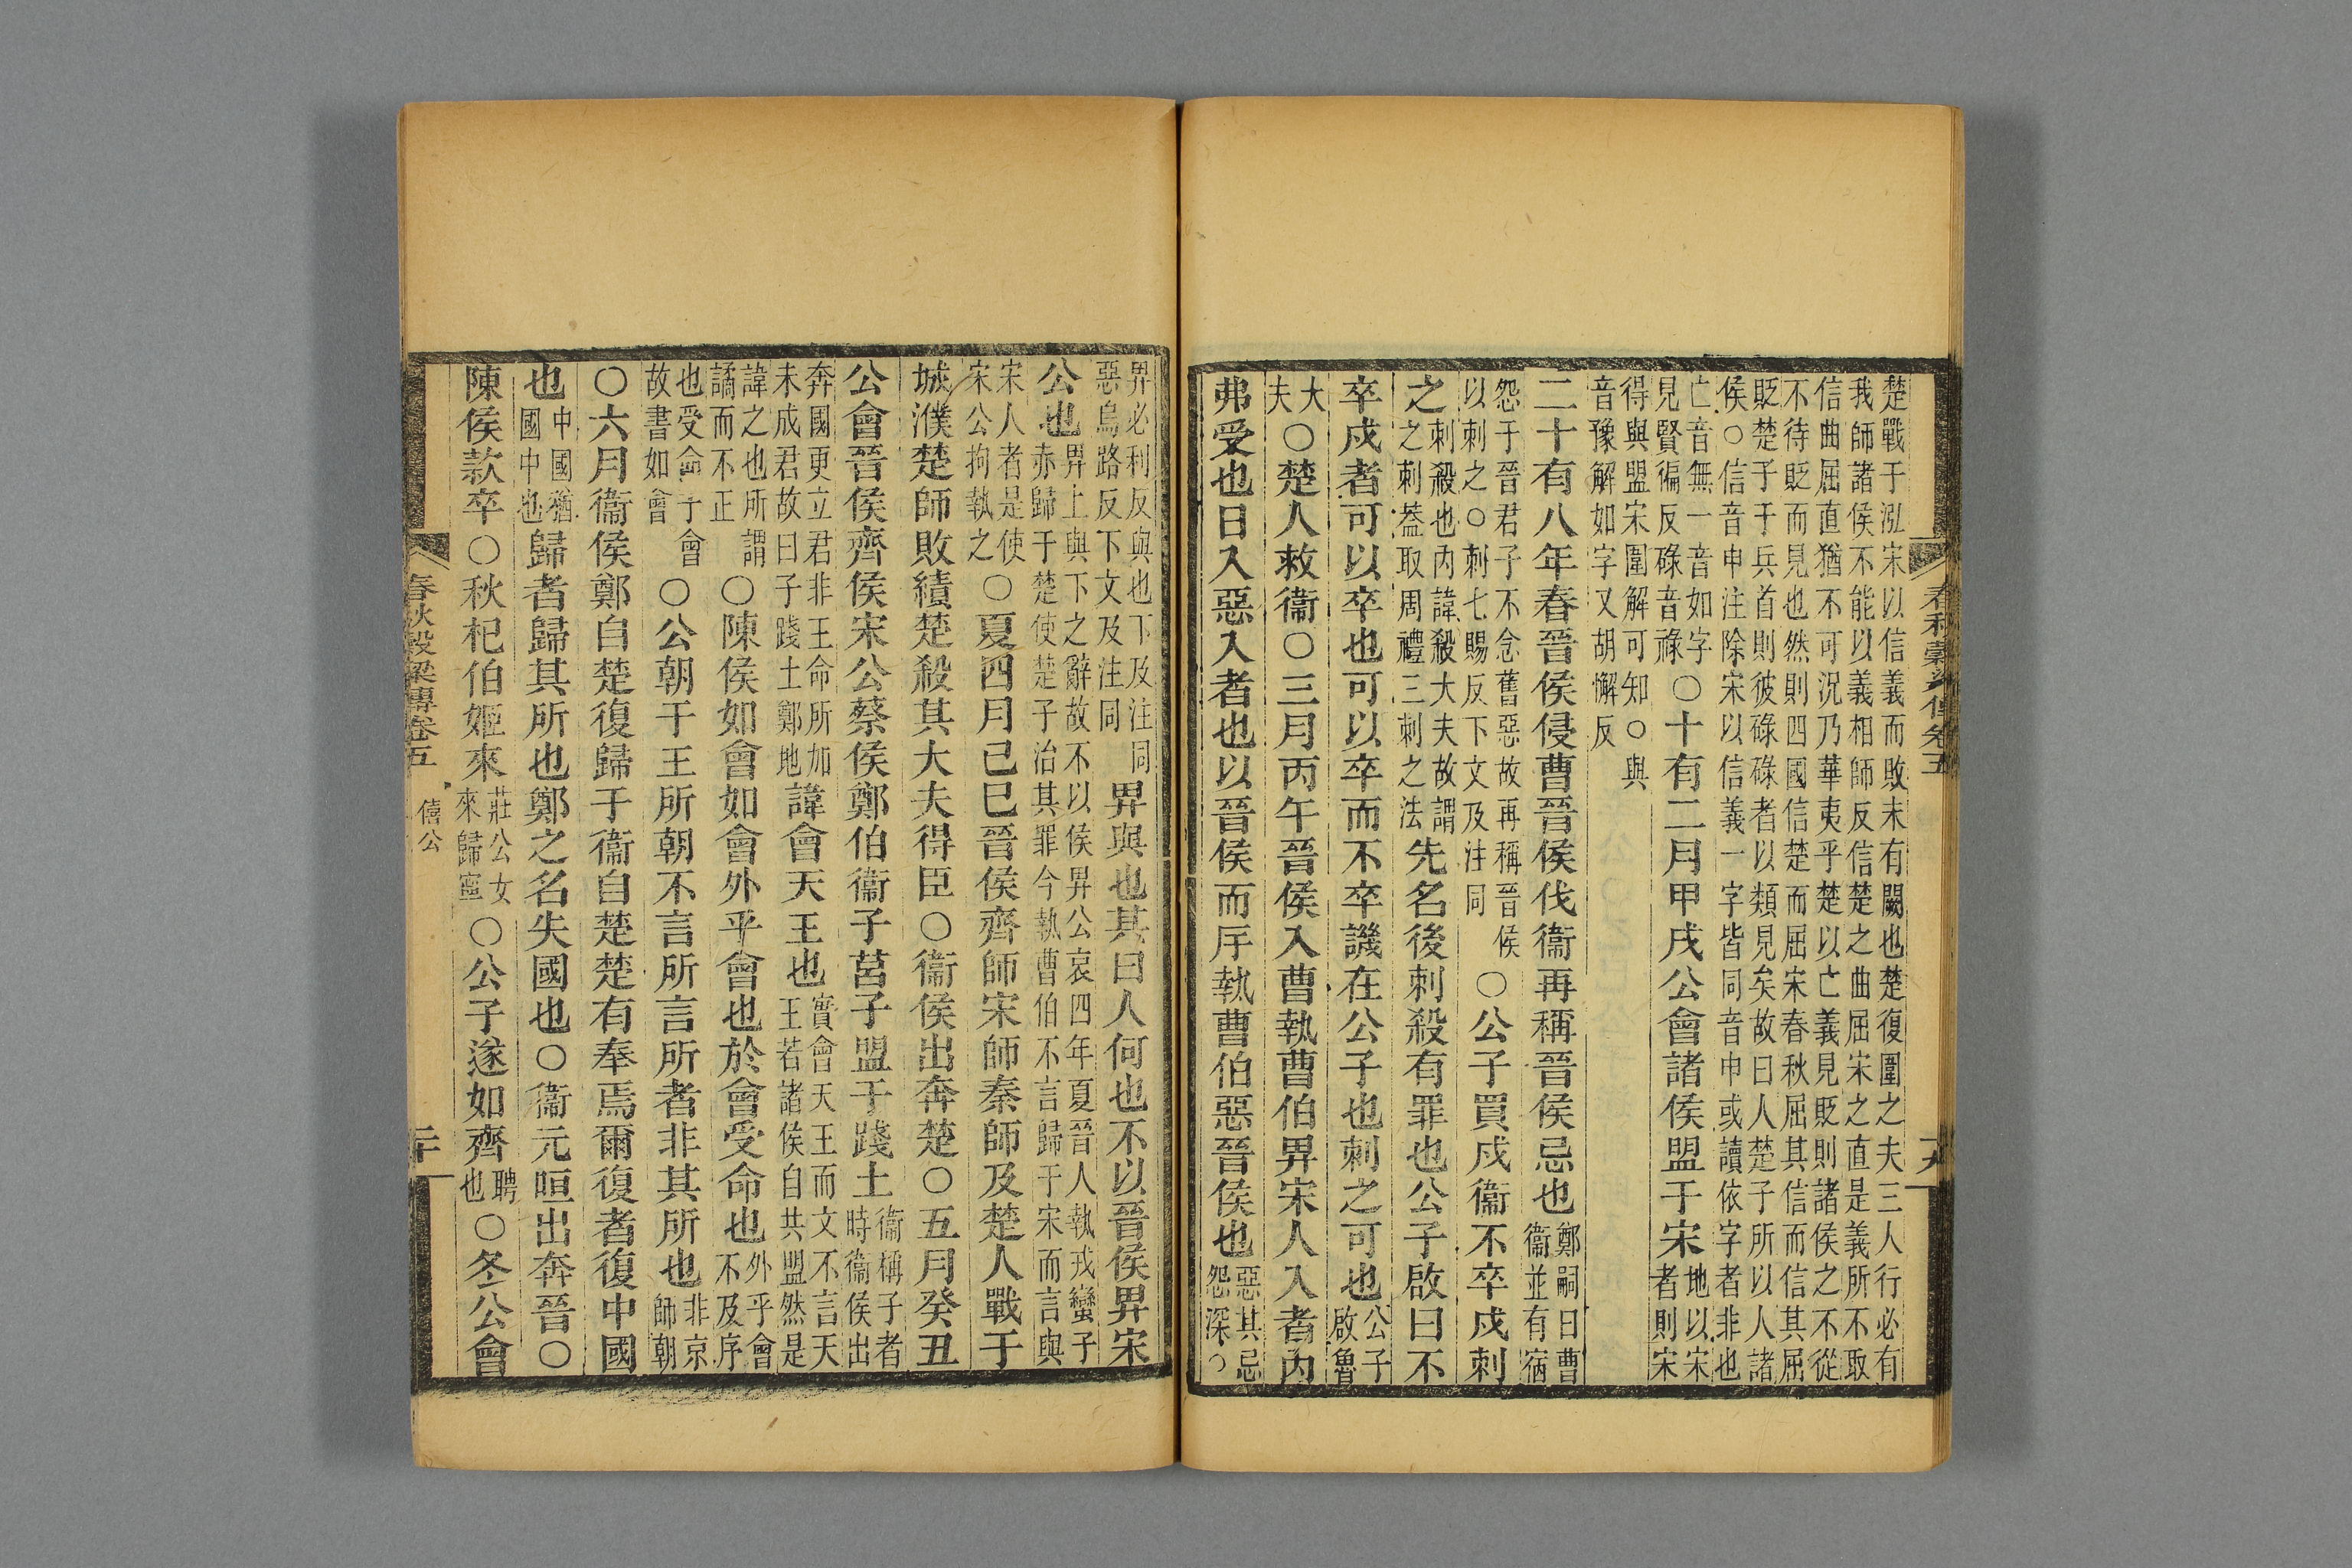 春秋穀梁傳卷五
楚戰于泓宋以信義而敗未有闕也楚復圍之夫三人行必有
我師諸侯不能以義相師反信楚之曲屈宋之直是義所不取
信曲屈直猶不可況乃華夷乎楚以亡義見貶則諸侯之不從
不待貶而見也然則四國信楚而屈宋春秋屈其信而信其屈
貶楚子于兵首則彼碌碌者以類見矣故曰人楚子所以人諸
侯○信音申注除宋以信義一字皆同音申或讀依字者非也
亡音無一音如字
見賢徧反碌音祿○十有二月甲戌公會諸侯盟于宋地以宋
者則宋
得與盟宋圍解可知○與
音豫解如字又胡懈反
二十有八年春晉侯侵曹晉侯伐衞再稱晉侯忌也鄭嗣曰曹
衞並有宿
怨于晉君子不念舊惡故再稱晉侯
以刺之○刺七賜反下文及注同○公子買戍衞不卒戍刺
之刺殺也內諱殺大夫故謂
之刺葢取周禮三刺之法先名後刺殺有罪也公子啟曰不
卒戍者可以卒也可以卒而不卒譏在公子也刺之可也公子
啟魯
大
夫○楚人救衞○三月丙午晉侯入曹執曹伯畀宋人入者內
弗受也日入惡入者也以晉侯而斥執曹伯惡晉侯也惡其忌
怨深○
畀必利反與也下及注同
惡烏路反下文及注同畀與也其曰人何也不以晉侯畀宋
公也畀上與下之辭故不以侯畀公哀四年夏晉人執戎蠻子
赤歸于楚使楚子治其罪今執曹伯不言歸于宋而言與
宋人者是使
宋公拘執之○夏四月己巳晉侯齊師宋師秦師及楚人戰于
城濮楚師敗績楚殺其大夫得臣○衞侯出奔楚○五月癸丑
公會晉侯齊侯宋公蔡侯鄭伯衞子莒子盟于踐土衞稱子者
時衞侯出
奔國更立君非王命所加
未成君故曰子踐土鄭地諱會天王也實會天王而文不言天
王若諸侯自共盟然是
諱之也所謂
譎而不正○陳侯如會如會外乎會也於會受命也外乎會
不及序
也受命于會
故書如會○公朝于王所朝不言所言所者非其所也非京
師朝
○六月衞侯鄭自楚復歸于衞自楚楚有奉焉爾復者復中國
也中國猶
國中也歸者歸其所也鄭之名失國也○衞元咺出奔晉○
陳侯款卒○秋杞伯姬來莊公女
來歸寧○公子遂如齊聘
也○冬公會
春秋穀梁傳卷五 僖公